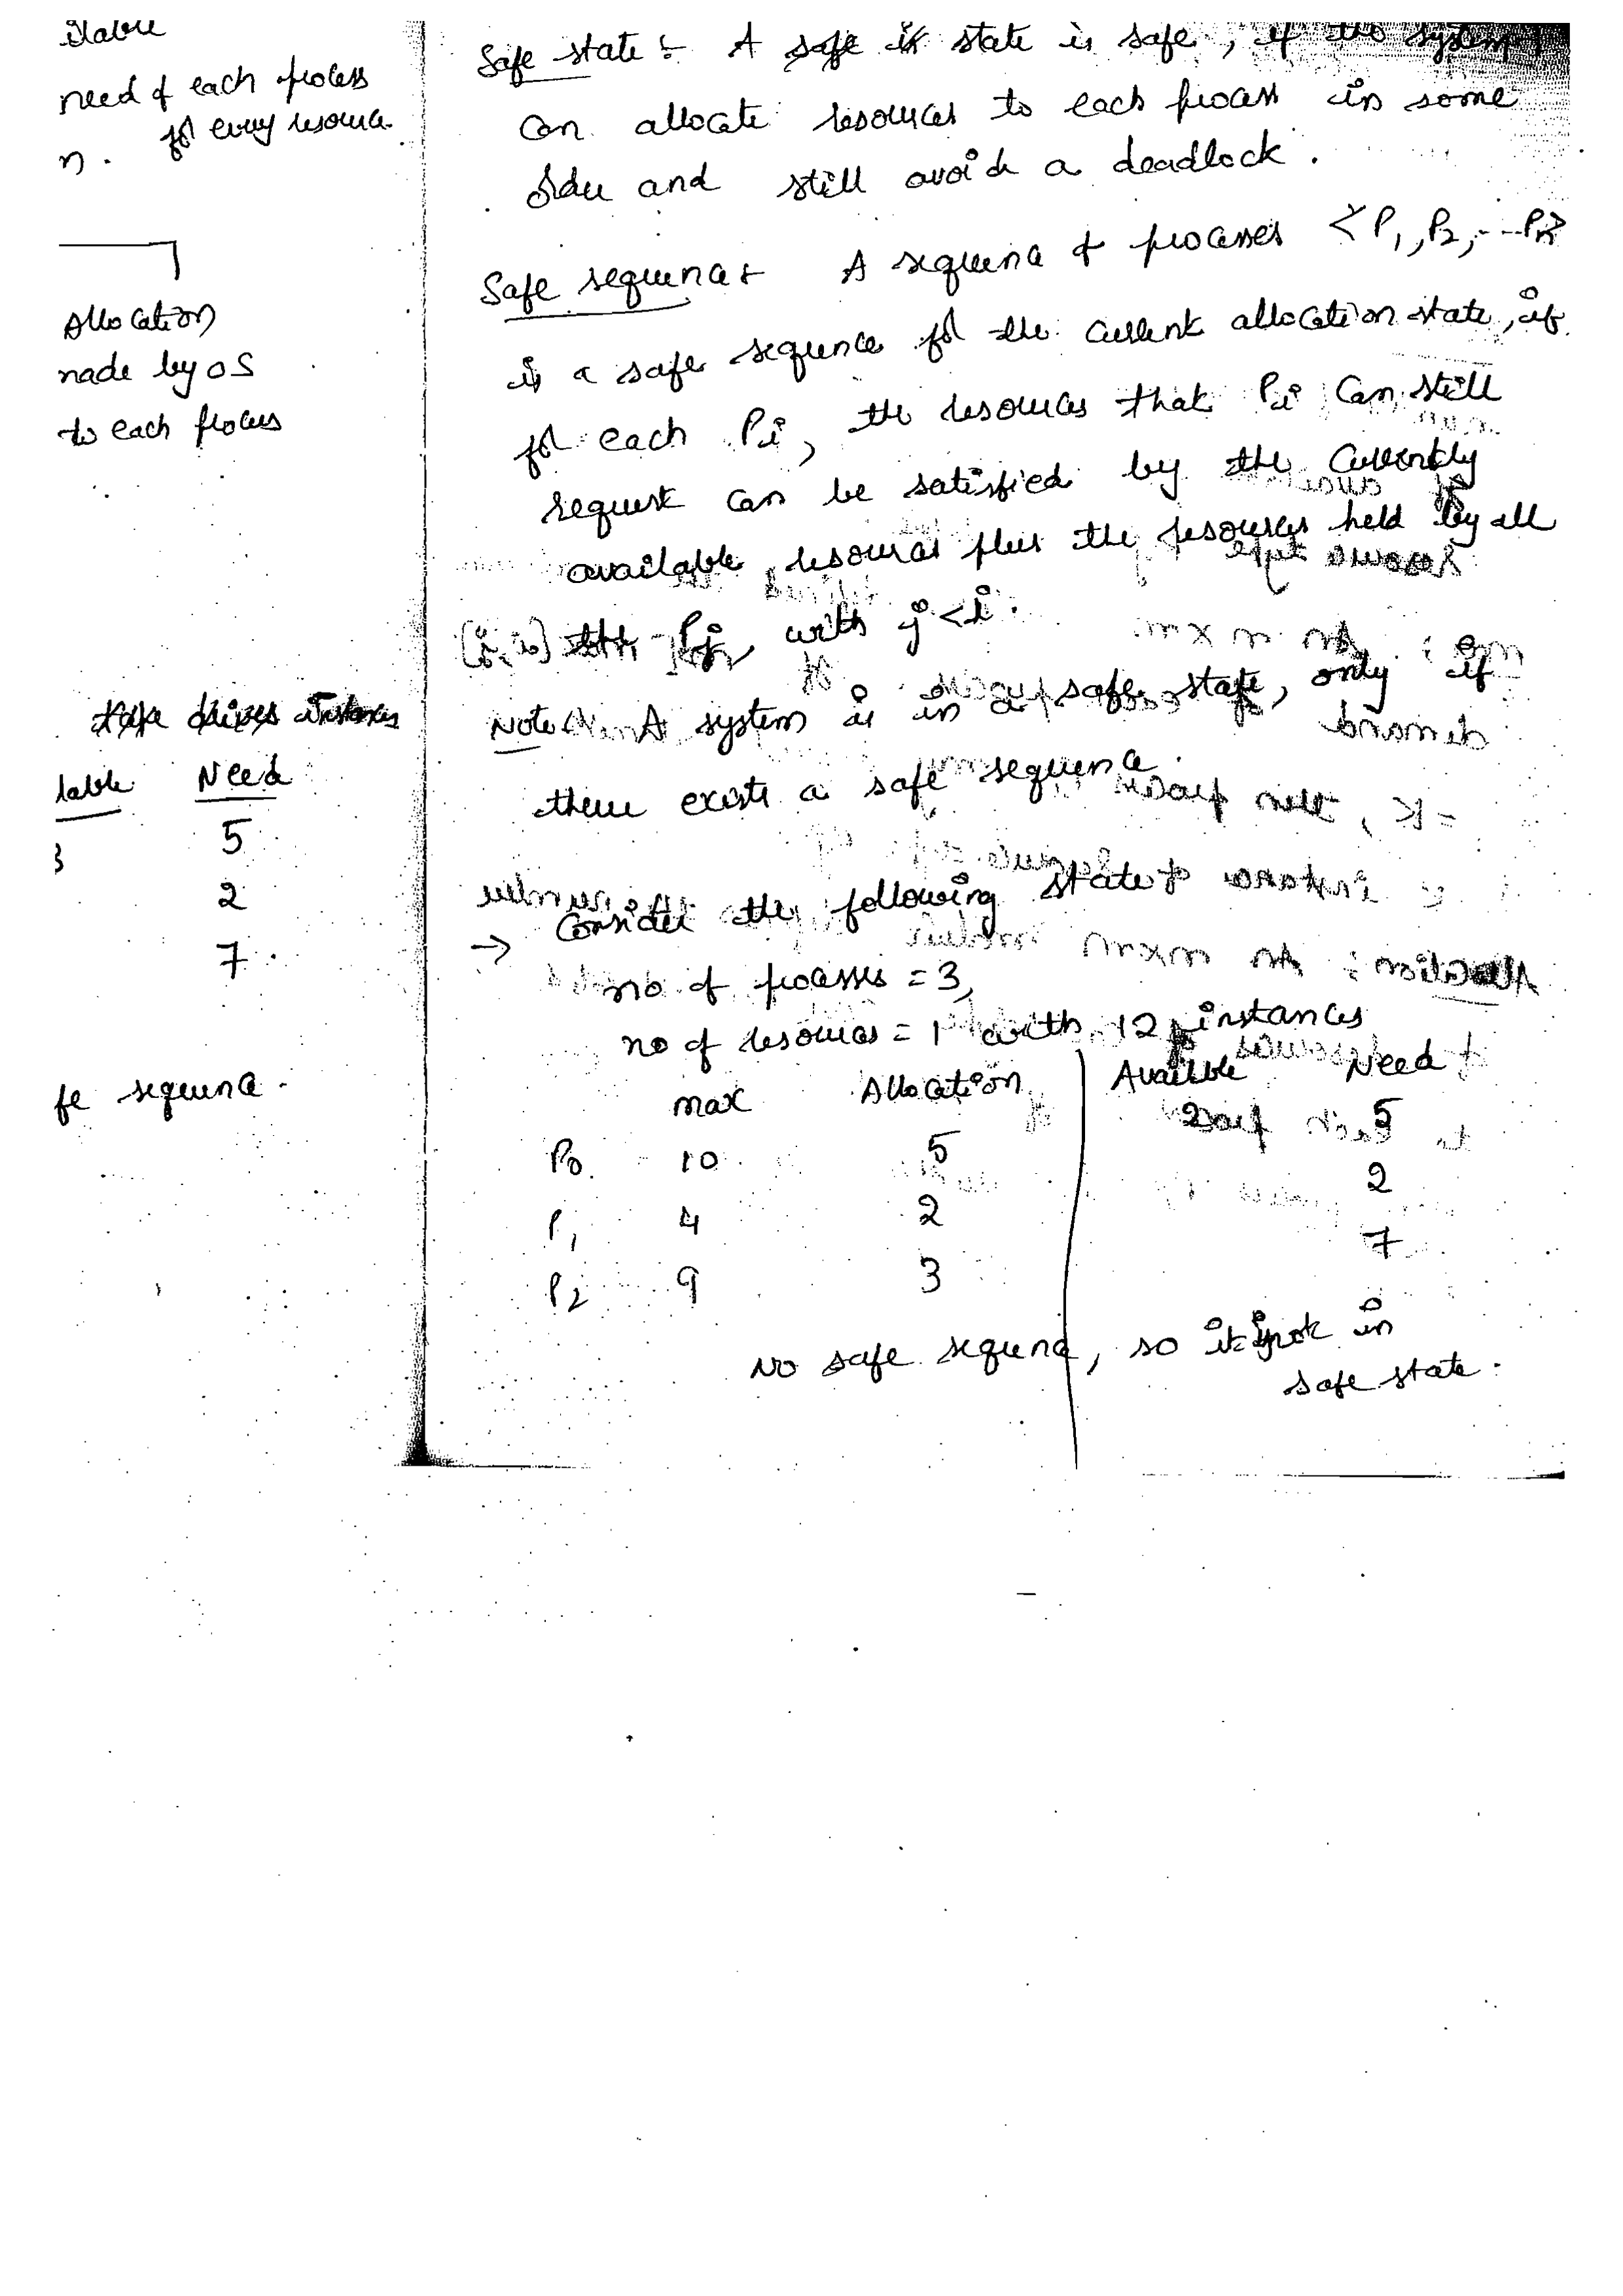 need of each process
for every resource.
n.
Allocation
made by OS
to each process
Need
5
2
7
fe sequence.
Safe state :- A safe is state is safe, if the system
can allocate resources to each process in some
order and still avoid a deadlock.
Safe sequence :- A sequence of processes <P1, P2, -- Pn>
is a safe sequence for the current allocation state, if
for each Pi, the resources that Pi can still
request can be satisfied by the currently
available resources plus the resources held by all
the Pj, with j < i.
Note :- A system is in a safe state, only if
there exists a safe sequence.
→ Consider the following state
no of processes = 3,
no of resources = 1 with 12 instances
max Allocation Available Need
P0 10 5 2 5
P1 4 2 2
P2 9 3 7
No safe sequence, so it is not in
safe state.